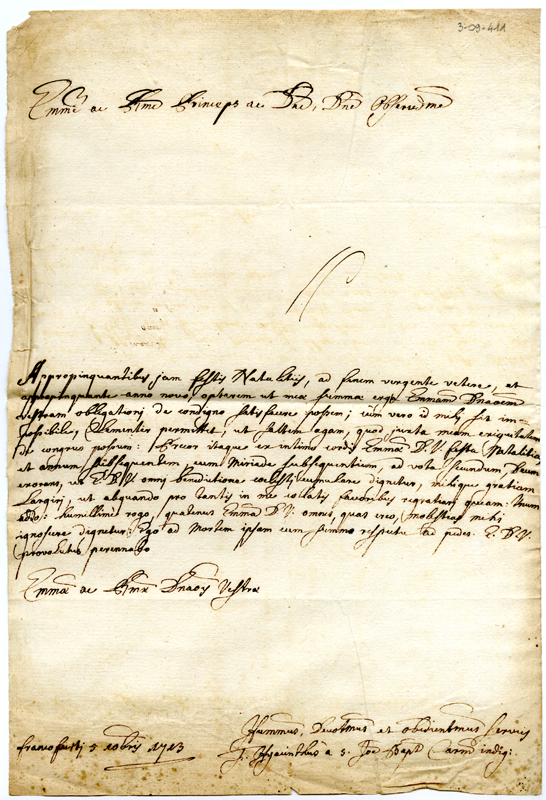 3-09-411
Emme ac Rme Princeps ac Dne, Dne Observdme
Appropinquantibus jam festis Natalitiis, ad finem vergente vetere, et
appropinquante anno novo, optarem ut mea summa erga Emmam Dnaoem
Vestram obligationj de condigno satisfacere possem; cum vero id mihi sit im-
possibile, clementer permittet, ut saltem agam, quod juxta meam exiguitatem
de congruo possum: Precor itaque ex intimo cordis Emma D. V. festa Natalitia
et annum subsequentem cum Miriade subsequentium, ad vota secundum Deum
ut E. D. V. omni benedictione coelesti cumulare dignetur, mihique gratiam
largirj, ut aliquando pro tantis in me favoribus regratiari queam: Unum
addo: humillime rogo, quatenus Emma D. V. omnes, quas creo, molestias mihi
ignoscere dignetur: Ego ad Mortem ipsam cum summo respectu ad pedes E. D. V.
provolutus permaneo
Emmæ ac Rmæ Dnaois Vestræ
Francofurtj 5 10bris 1713
Hummus, Devotmus et obedientmus Servus
F. Hyacinthus a S. Joe Bapt Carm indig: